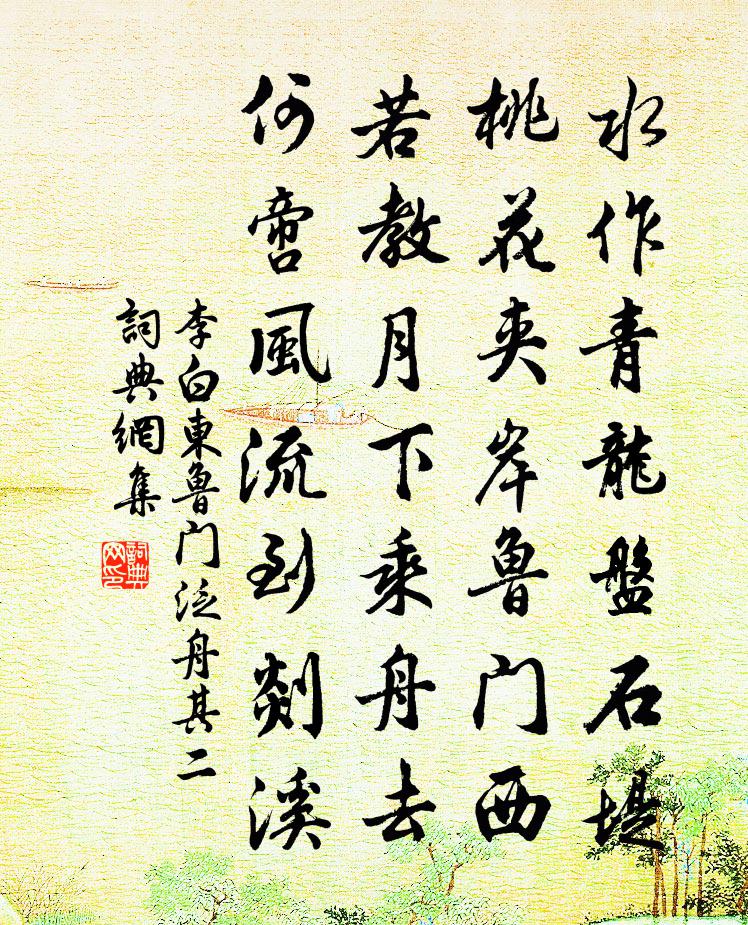 水作青龍盤石堤
桃花夾岸魯门西
若教月下乘舟去
何啻風流到剡溪
李白東魯门泛舟其二
詞典網集
詞典网印